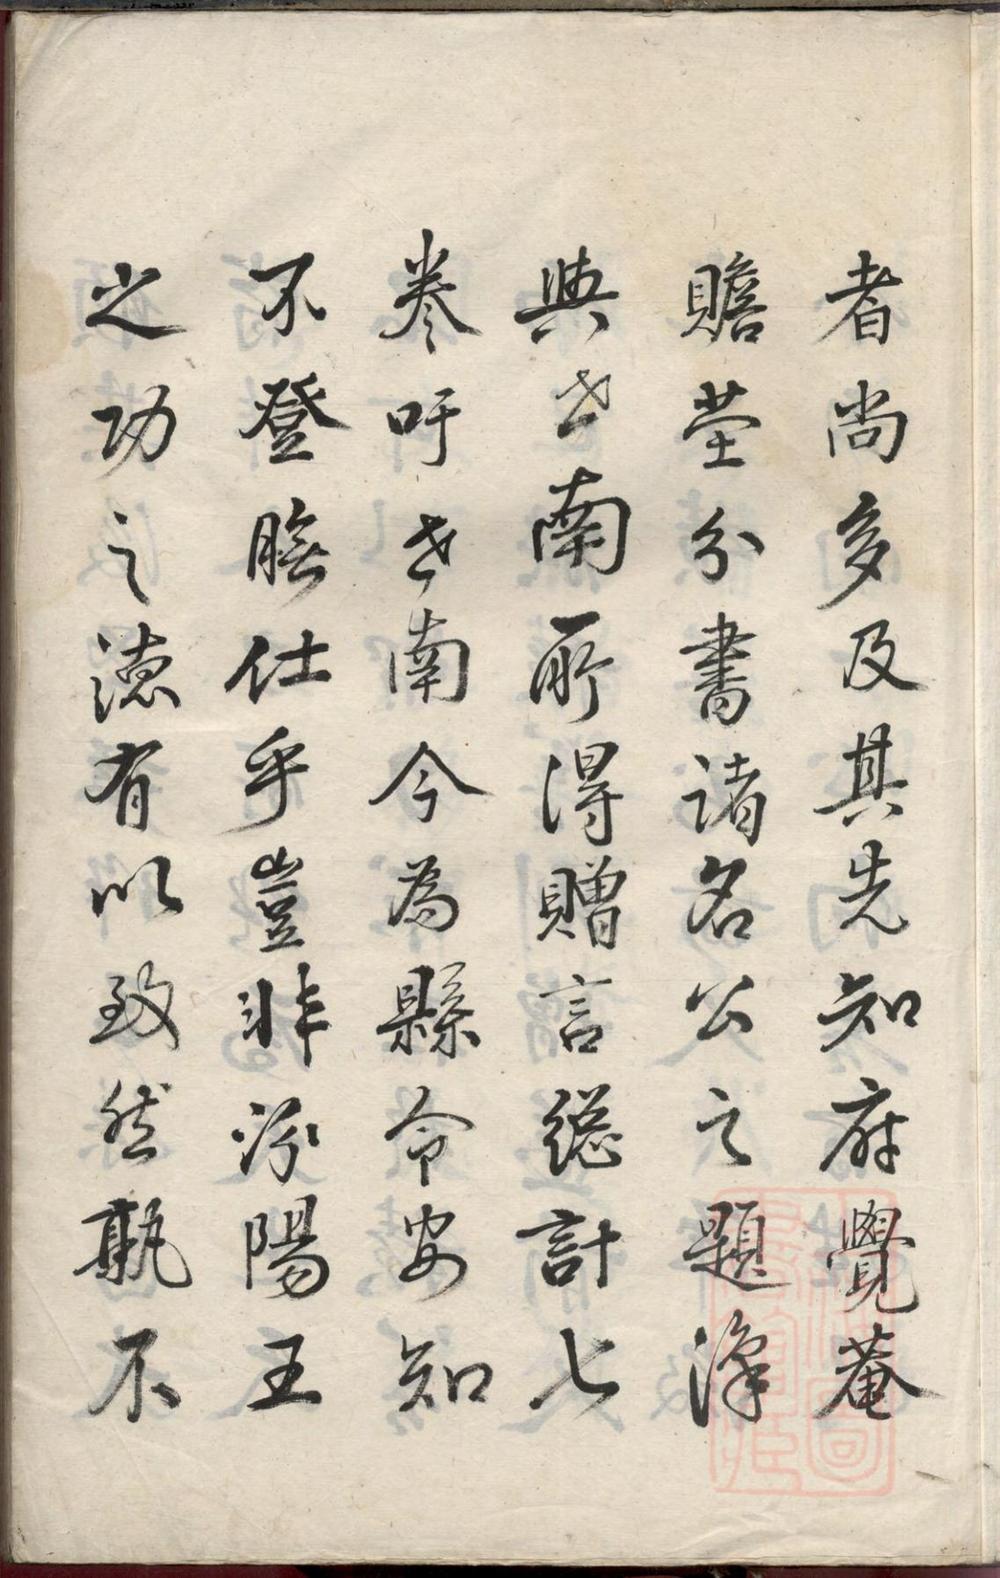 者尚多及其先知府覺菴
贍塋分書諸名公之題
與世南所得贈言總計七
卷吁世南今為縣令安知
不登膴仕乎豈非汾陽王
之功之德有以致然孰不